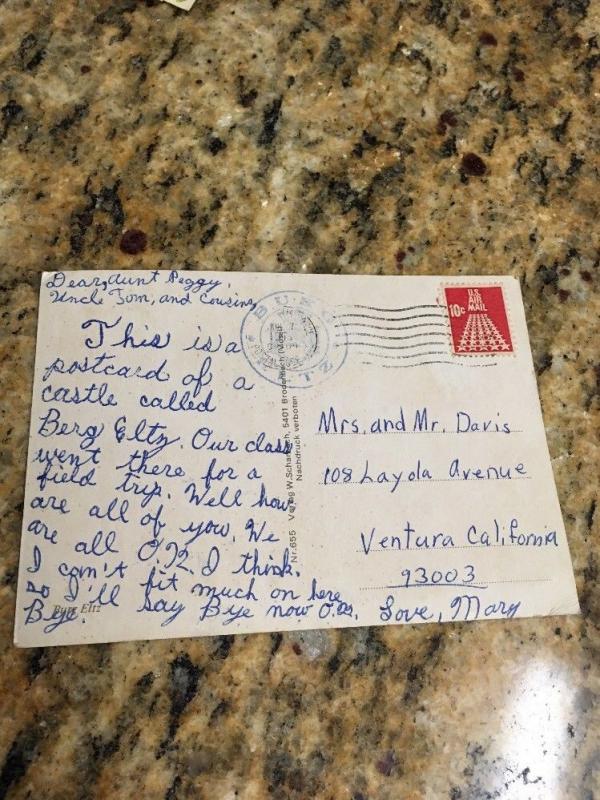 Dear, Aunt Peggy,
Uncle Tom, and Cousins,
This is a
postcard of a
castle called
Berg Eltz. Our class
went there for a
field trip. Well how
are all of you. We
are all O.K. I think.
I can't fit much on here
so I'll say Bye now
Bye. Love, Mary
Burg Eltz
Nr. 655 Verlag W. 5401 Brodenbach
Nachdruck verboten
BURG
TZ
U.S.
AIR
MAIL
10c
Mrs. and Mr. Davis
108 Layola Avenue
Ventura California
93003